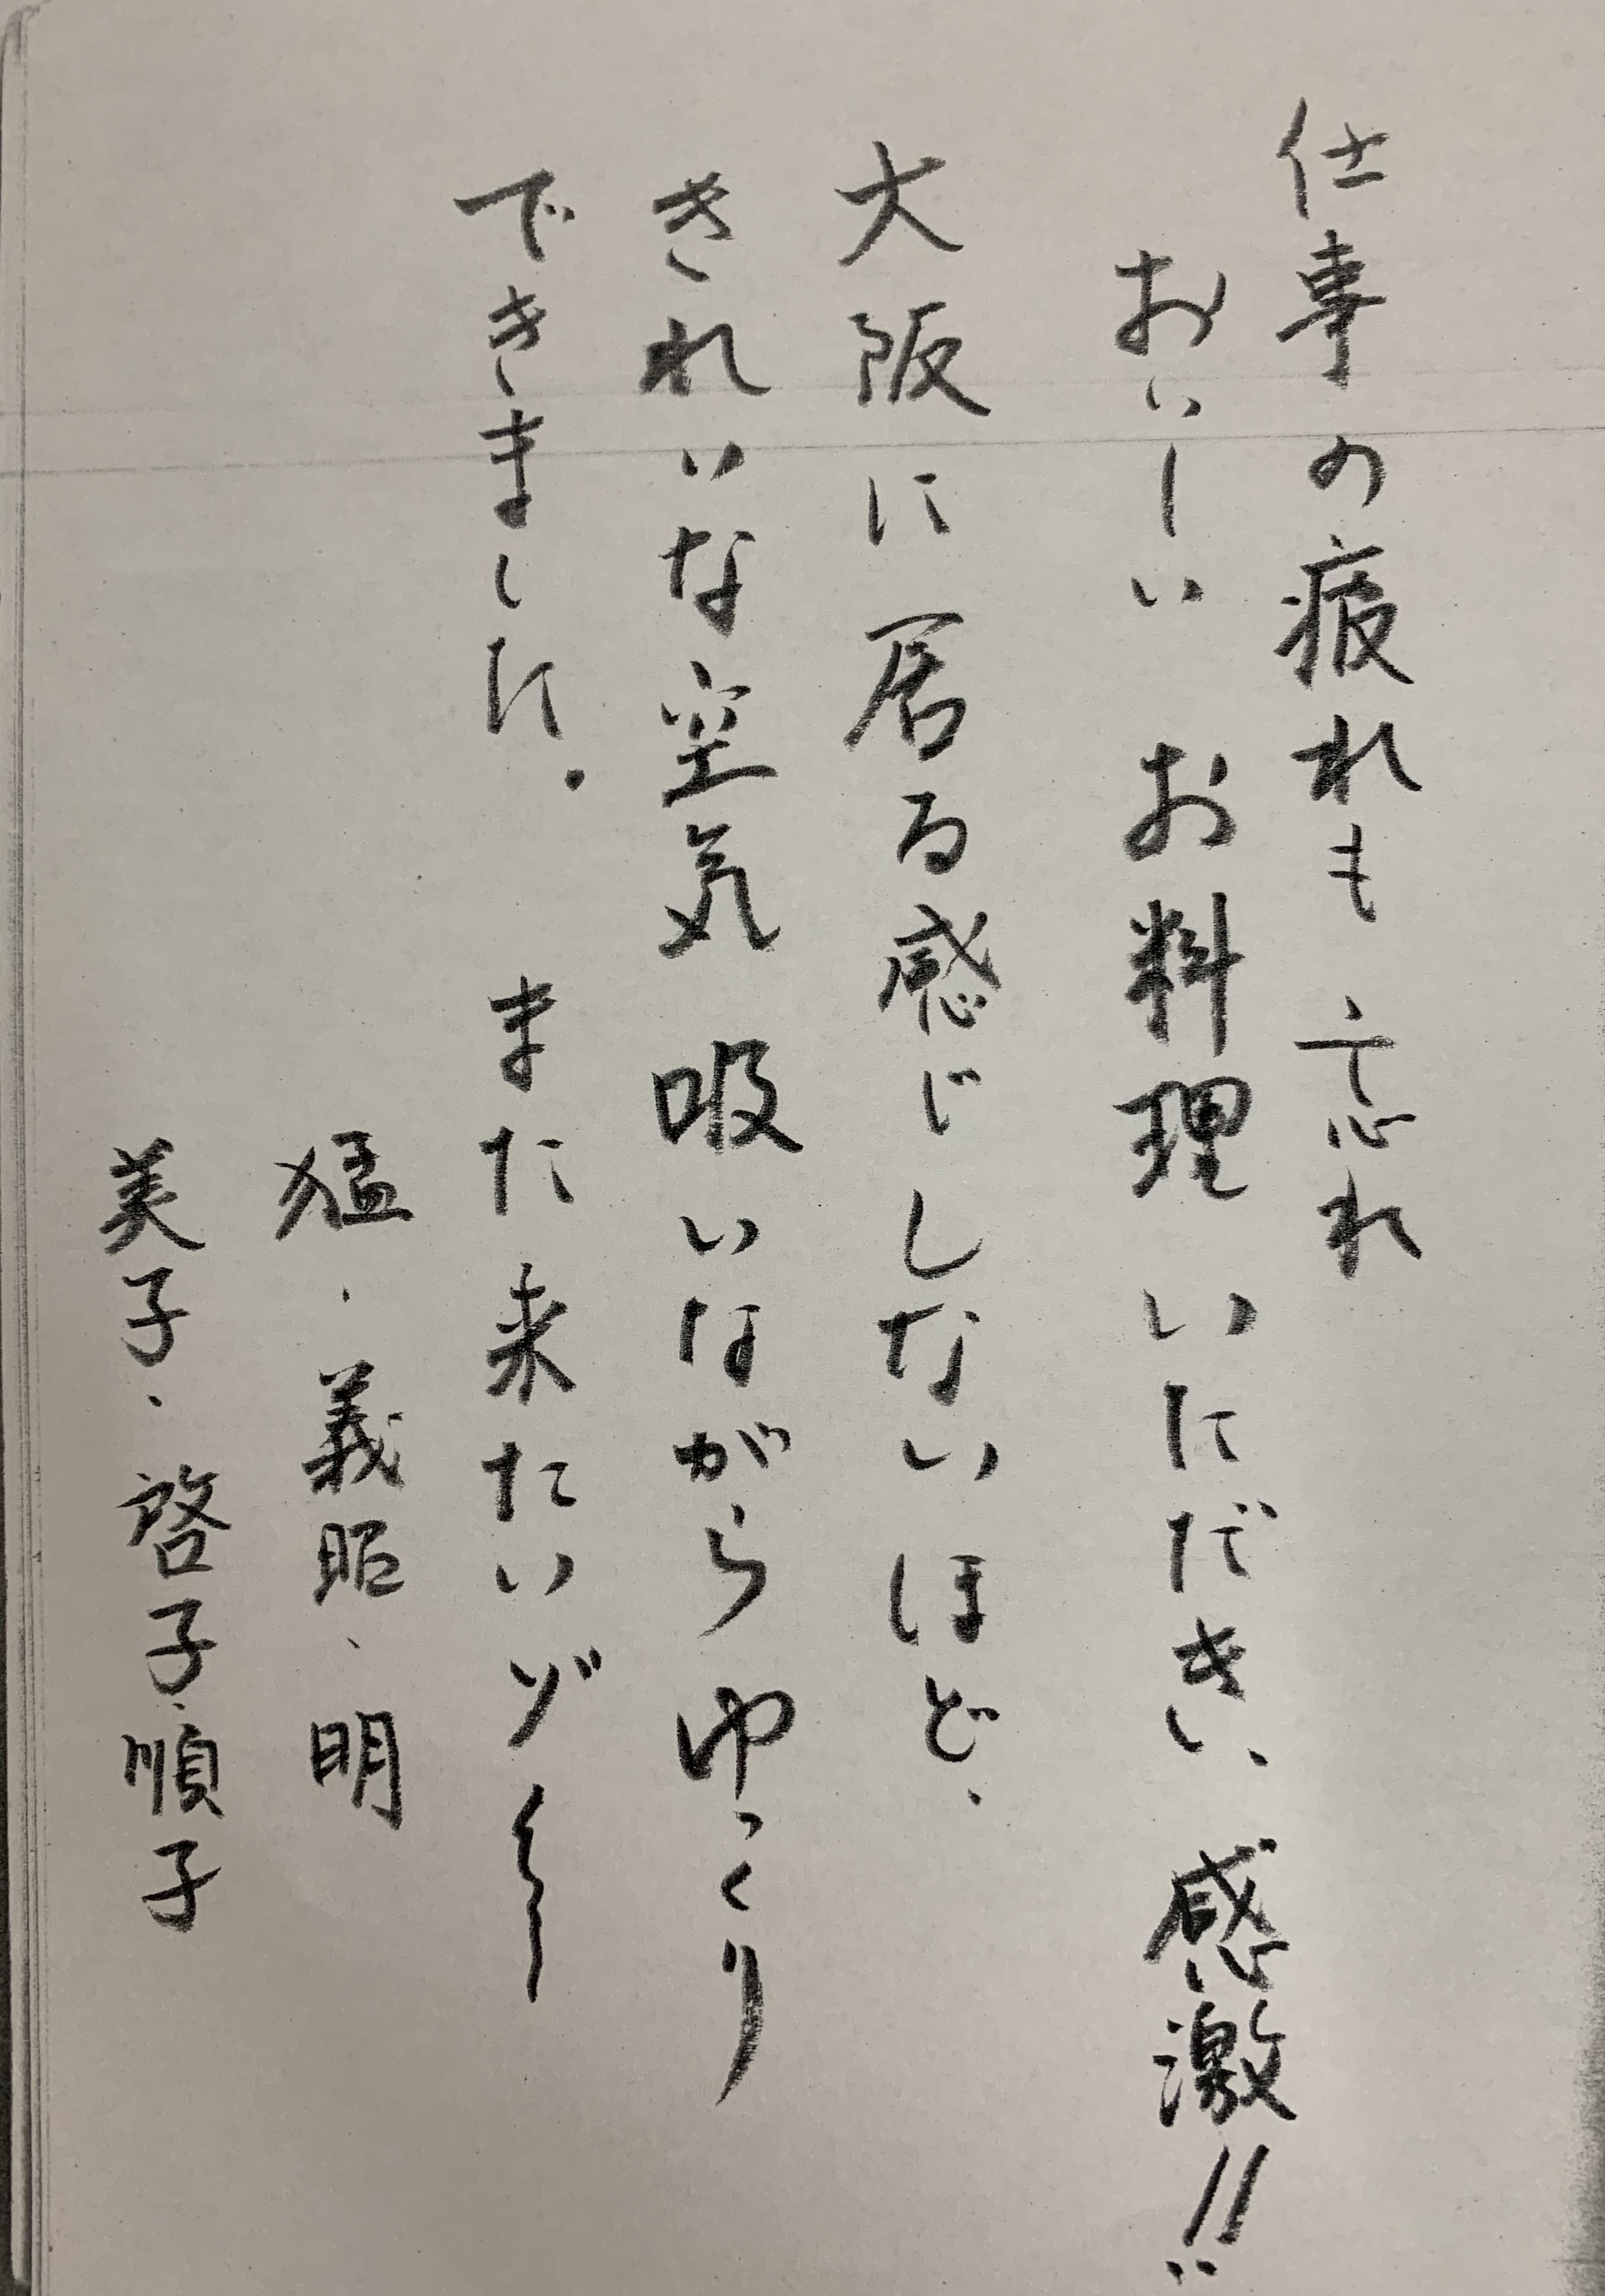 仕事の疲れも忘れ
おいしい お料理いただき、感激!!
大阪に居る感じしないほど、
きれいな空気吸いながらゆっくり
できました。 また来たいゾ〜
猛・義昭・明
美子・啓子・順子